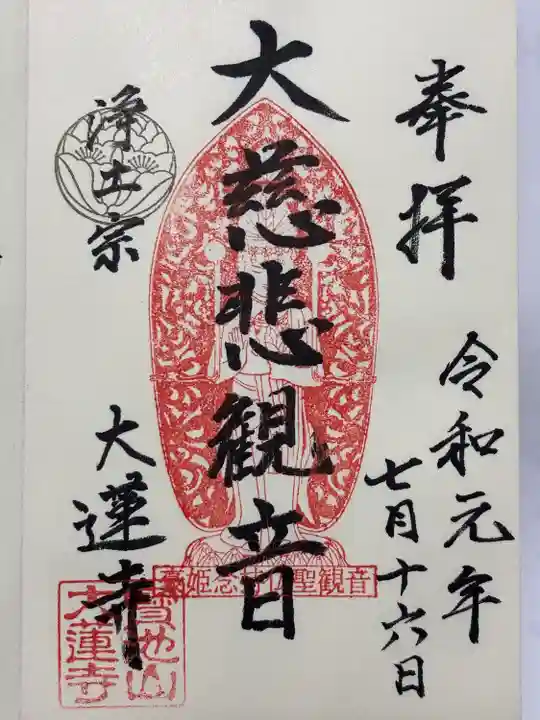 奉拝
令和元年
七月十六日
大慈悲観音
浄土宗
大蓮寺
菊姫念持仏聖観音
寳池山
大蓮寺